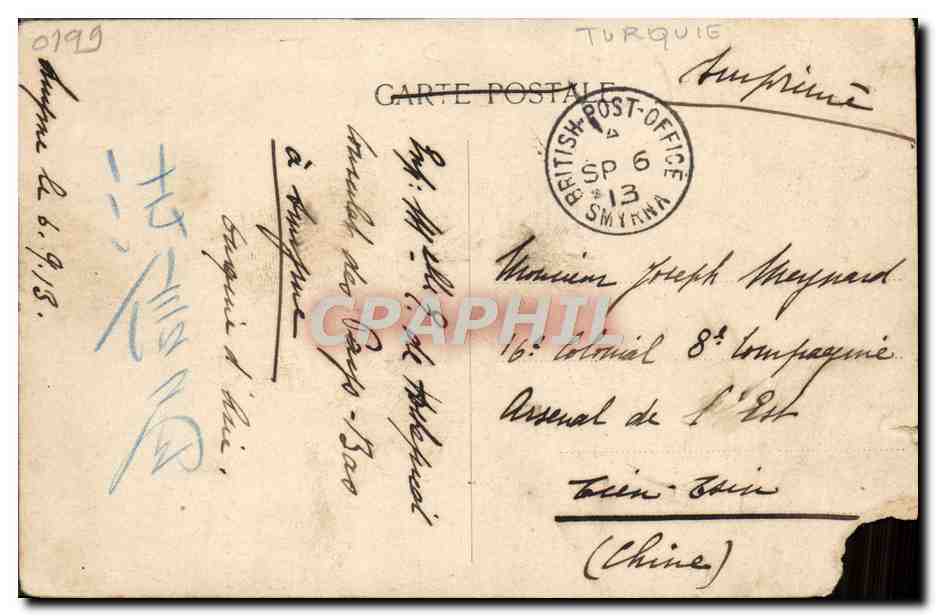 0199
TURQUIE
Imprimé
CARTE POSTALE
BRITISH-POST-OFFICE
SP 6
13
SMYRNA
Smyrne le 6.9.13.
法信局
Consulat des Pays-Bas
à Smyrne
Turquie d'Asie.
Monsieur Joseph Meynard
16e Colonial 8e Compagnie
Arsenal de l'Est
Tien-Tsin
(Chine)
CPAPHIL